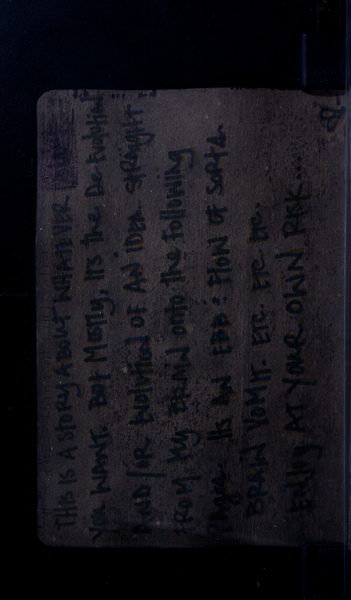 THIS IS A STORY ABOUT WHATEVER
YOU WANT. BUT MOSTLY, ITS THE De-Evolution
AND/OR EVOLUTION OF AN IDEA STRAIGHT
FROM MY BRAIN onto the following
Pages. ITS AN EBB : FLOW OF SORTS.
BRAIN VOMIT. ETC. ETC ETC.
ENJOY AT YOUR OWN RISK...